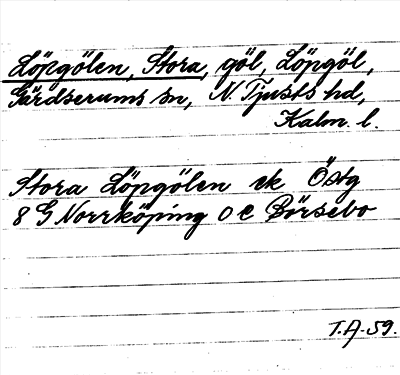 Löpgölen, Stora, göl, Löpgöl,
Gärdserums sn, N. Tjusts hd,
Kalm. l.
Stora Löpgölen ek Östg
8 G Norrköping 0 c Börsebo
T.A.-59.